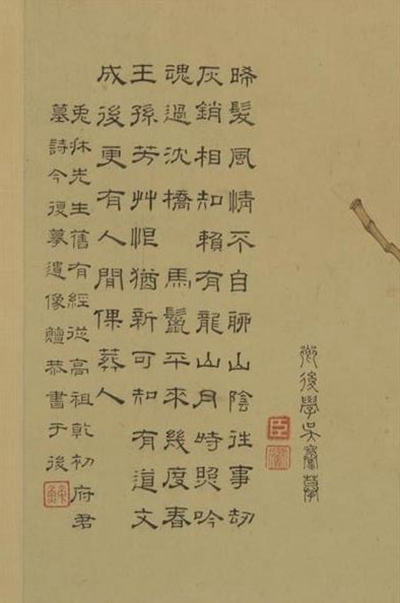 鄉後學吳騫摹
臣
騫
晞髮風情不自聊山陰往事劫
灰銷相知賴有龍山月時照吟
魂過沈橋 馬鬣平來幾度春
王孫芳艸怛猶新可知有道文
成後更有人閒倮葬人
兎牀先生舊有經從高祖乾初府君
墓詩今復摹遺像鱣恭書于後
仲魚